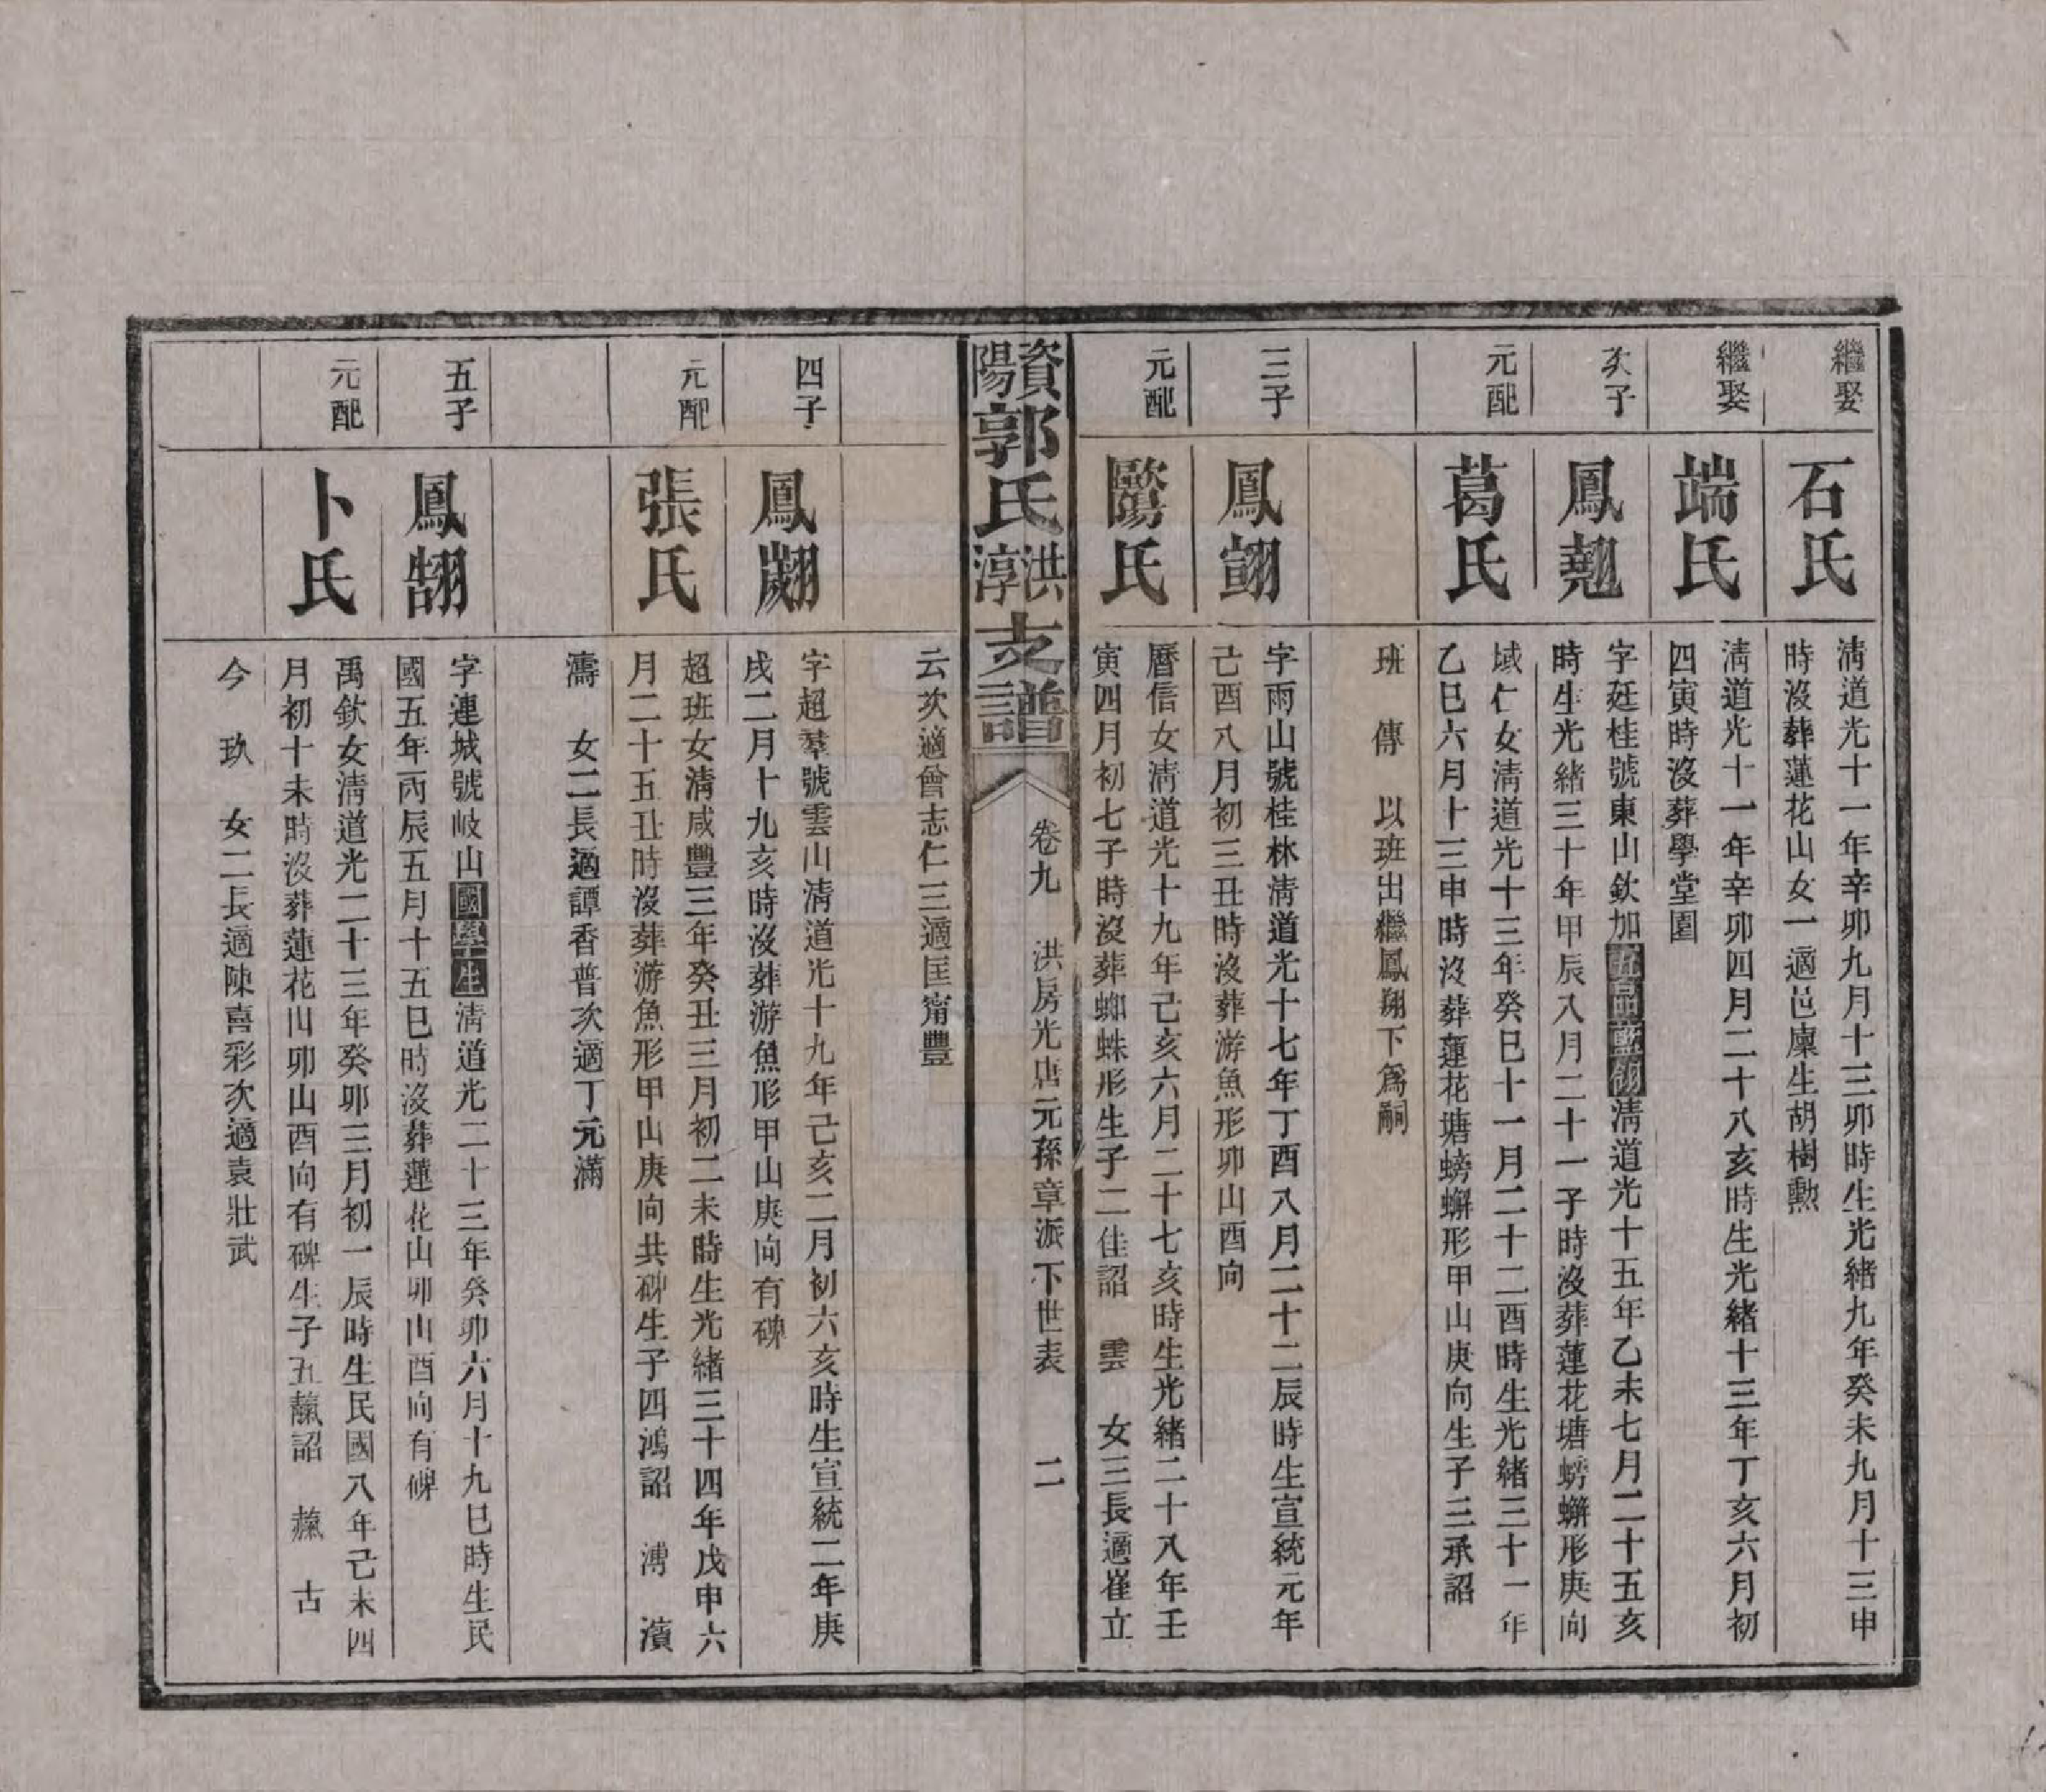 繼娶
石氏
淸道光十一年辛卯九月十三卯時生光緒九年癸未九月十三申
時沒葬蓮花山女一適邑廩生胡樹勲
繼娶
端氏
淸道光十一年辛卯四月二十八亥時生光緒十三年丁亥六月初
四寅時沒葬學堂園
次子
鳳翹
字廷桂號東山欽加五品藍翎淸道光十五年乙未七月二十五亥
時生光緒三十年甲辰八月二十一子時沒葬蓮花塘螃蠏形庚向
元配
葛氏
域仁女淸道光十三年癸巳十一月二十二酉時生光緒三十一年
乙巳六月十三申時沒葬蓮花塘螃蠏形甲山庚向生子三承詔
班　傳　以班出繼鳳翔下爲嗣
三子
鳳翧
字雨山號桂林淸道光十七年丁酉八月二十二辰時生宣統元年
己酉八月初三丑時沒葬游魚形卯山酉向
元配
氏
曆信女淸道光十九年己亥六月二十七亥時生光緒二十八年壬
寅四月初七子時沒葬蜘蛛形生子二佳詔　雲　女三長適崔立
資陽郭氏洪淳支譜
卷九　洪房光唐元孫章派下世表　二
云次適曾志仁三適匡甯豐
四子
鳳翽
字超羣號雲山淸道光十九年己亥二月初六亥時生宣統二年庚
戌二月十九亥時沒葬游魚形甲山庚向有碑
元配
張氏
超班女淸咸豐三年癸丑三月初二未時生光緒三十四年戊申六
月二十五丑時沒葬游魚形甲山庚向共碑生子四鴻詔　溥　濱
濤　女二長適譚香普次適丁元滿
五子
鳳翓
字連城號岐山國學生淸道光二十三年癸卯六月十九巳時生民
國五年丙辰五月十五巳時沒葬蓮花山卯山酉向有碑
元配
卜氏
禹欽女淸道光二十三年癸卯三月初一辰時生民國八年己未四
月初十未時沒葬蓮花山卯山酉向有碑生子五詔　古
今　玖　女二長適陳喜彩次適袁壯武